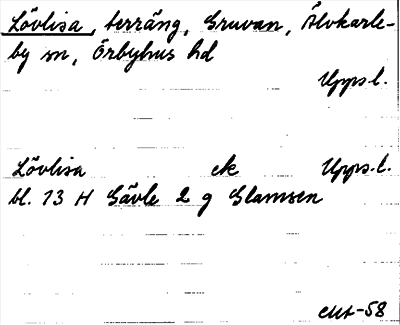 Lövlisa, terräng, Gruvan, Älvkarle-
by sn, Örbyhus hd
Upps.l.
Lövlisa ek Upps.l.
bl. 13 H Gävle 2 g Glamsen
-58